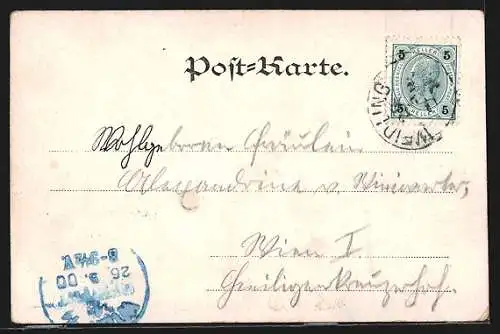 Post-Karte.
5 HELLER 5
5 5
WEIDLING
Wohlgeboren Fräulein
Alexandrine v. Winiwarter,
Wien I.
Heiligenkreuzerhof.
26. 9. 00
8-9½V